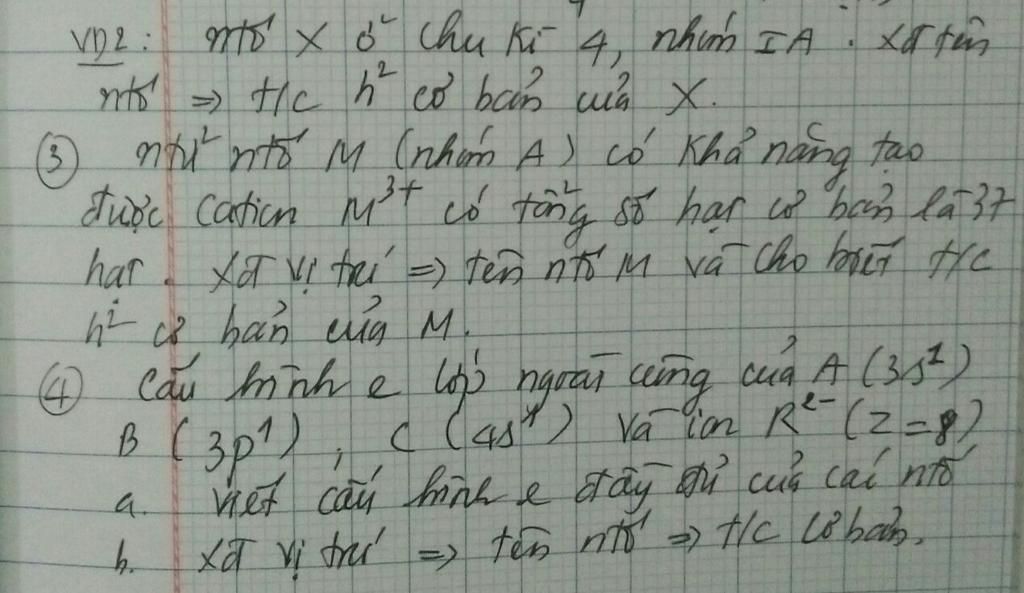 VD2: ntố X ở chu kì 4, nhóm IA. Xđ tên
ntố => t/c h² cơ bản của X.
③ ntử ntố M (nhóm A) có khả năng tạo
được Cation M³⁺ có tổng số hạt cơ bản là 37
hạt. Xđ vị trí => tên ntố M và cho biết t/c
h² cơ bản của M.
④ Cấu hình e lớp ngoài cùng của A (3s¹)
B (3p¹), C (4s¹) và ion R²⁻ (Z=8)
a. viết cấu hình e đầy đủ của các ntố
b. Xđ vị trí => tên ntố => t/c cơ bản.